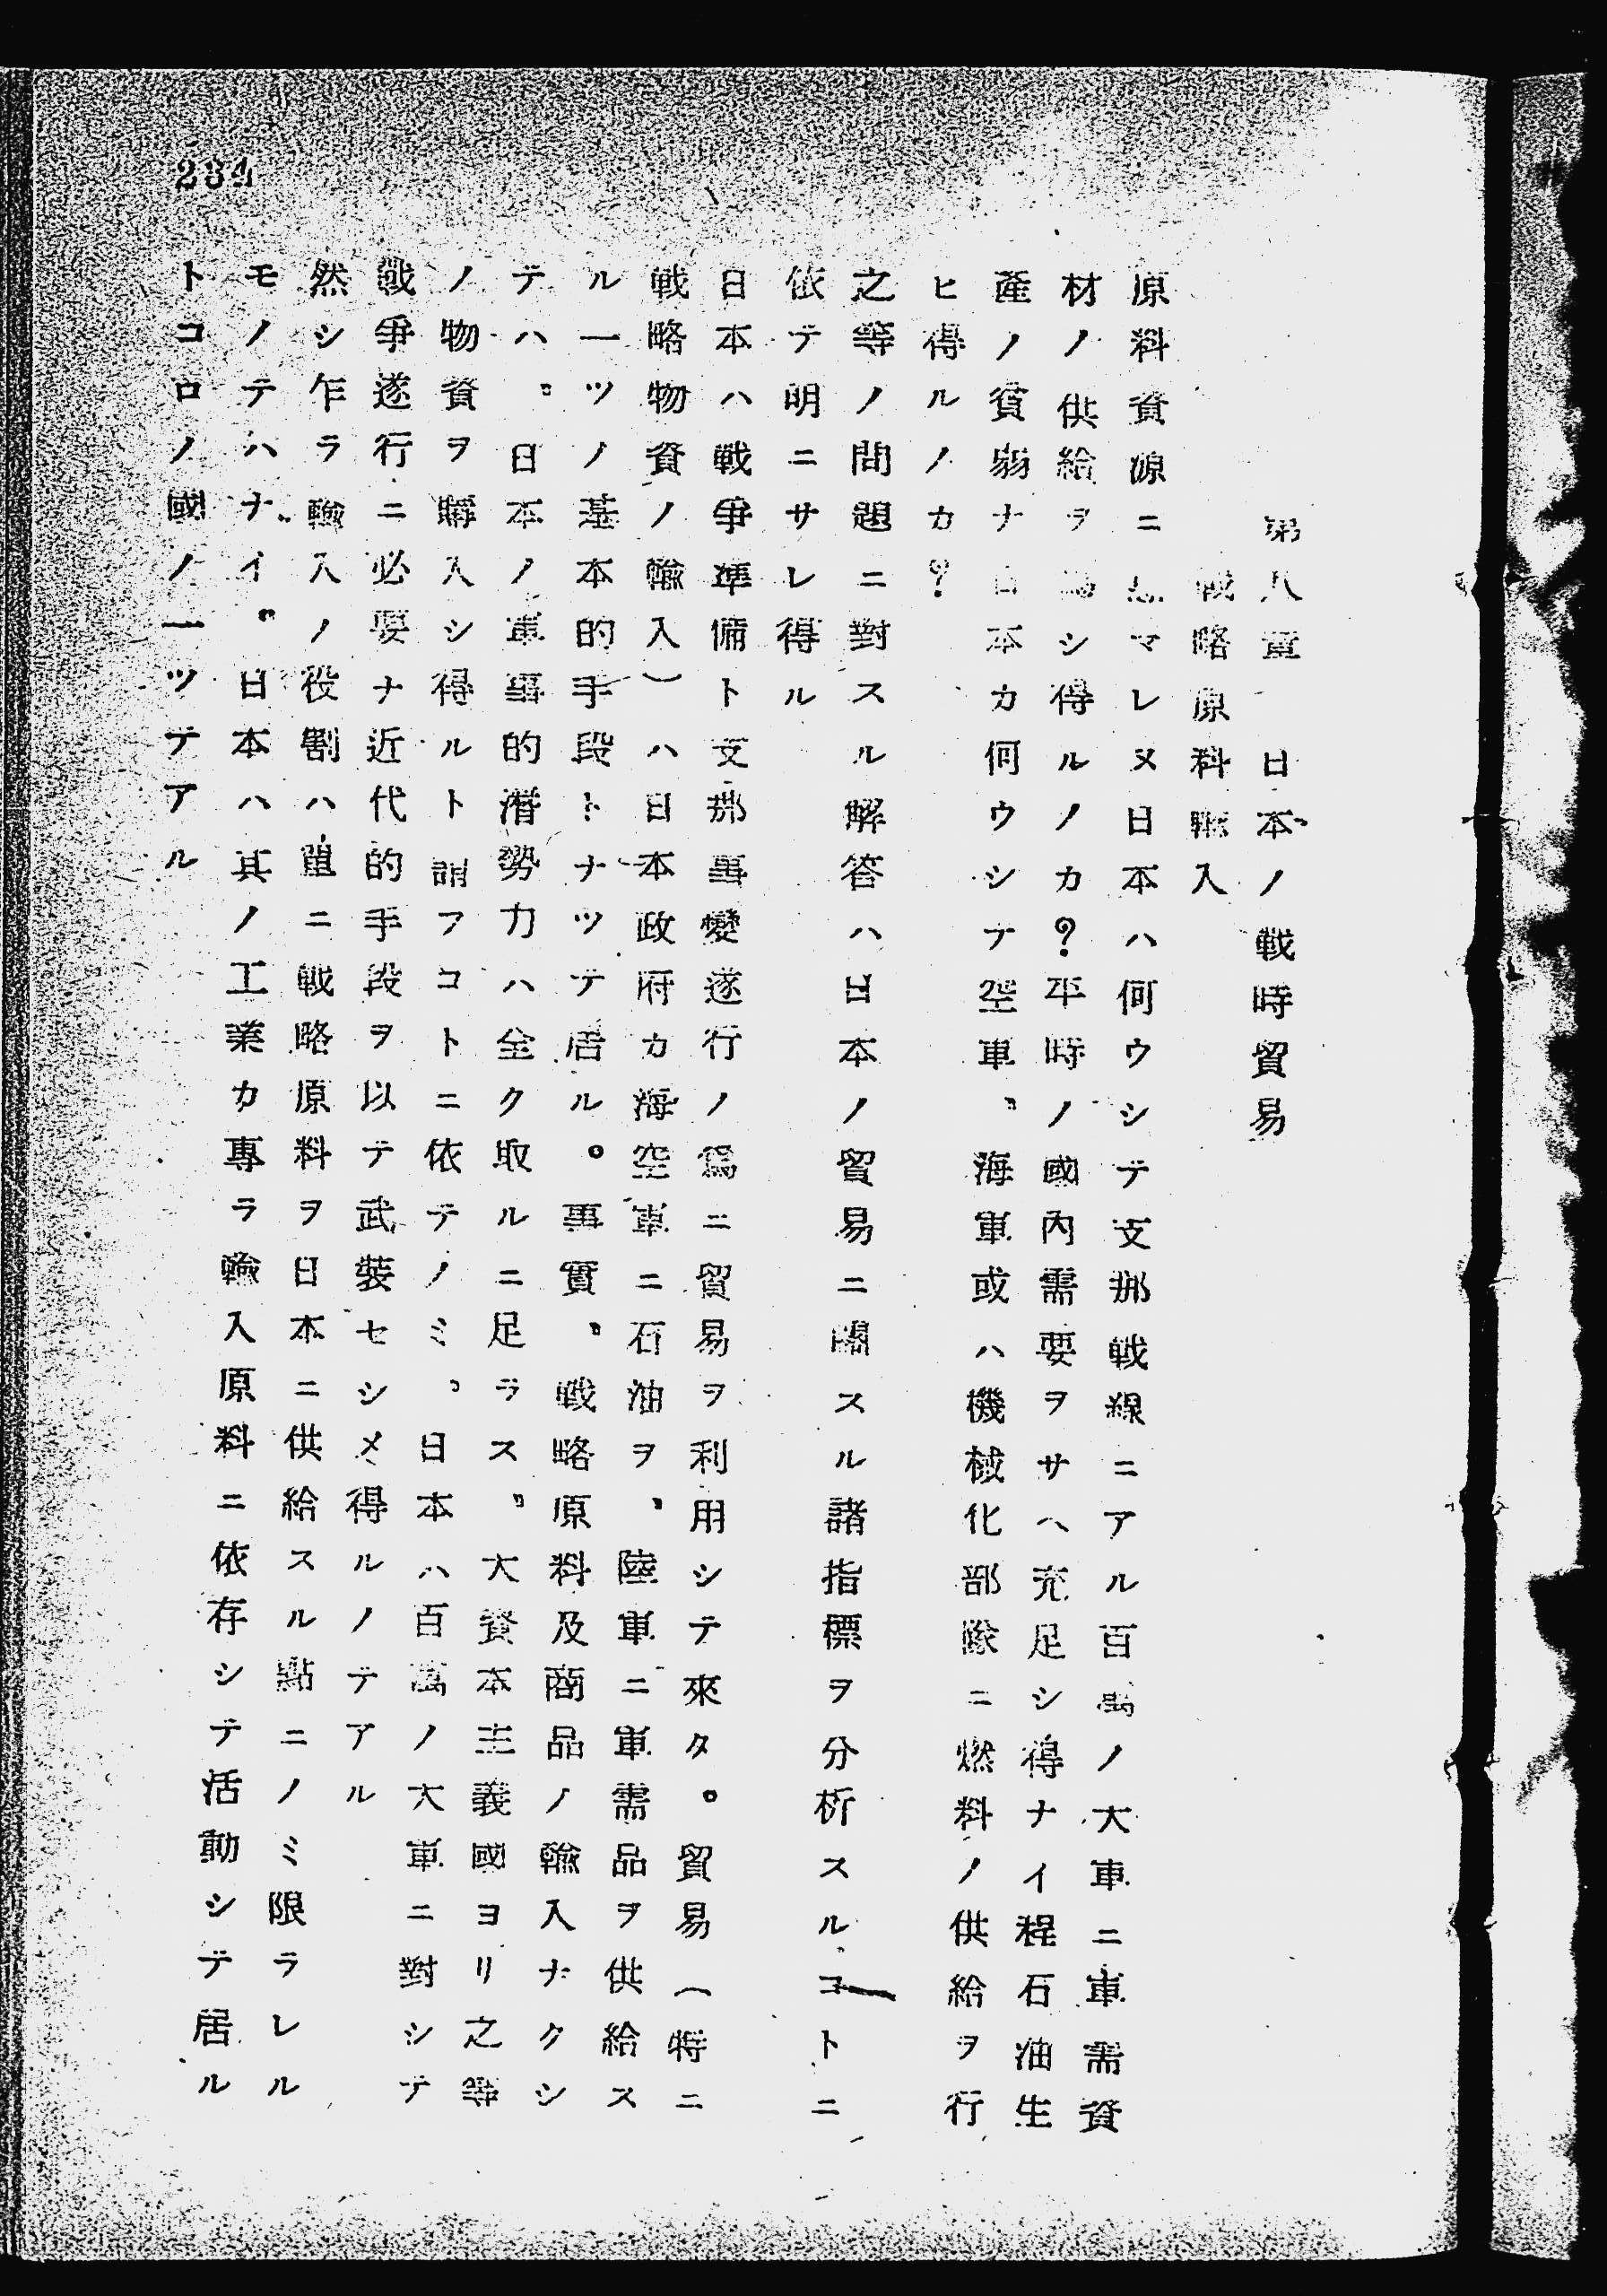 234
第八章　日本ノ戦時貿易
戦略原料輸入
原料資源ニ恵マレヌ日本ハ何ウシテ支那戦線ニアル百萬ノ大軍ニ軍需資
材ノ供給ヲ為シ得ルノカ?平時ノ國內需要ヲサヘ充足シ得ナイ程石油生
産ノ貧弱ナ日本カ何ウシテ空軍、海軍或ハ機械化部隊ニ燃料ノ供給ヲ行
ヒ得ルノカ?
之等ノ問題ニ對スル解答ハ日本ノ貿易ニ關スル諸指標ヲ分析スルコトニ
依テ明ニサレ得ル
日本ハ戦爭準備ト支那事變遂行ノ爲ニ貿易ヲ利用シテ來タ。貿易(特ニ
戦略物資ノ輸入)ハ日本政府カ海空軍ニ石油ヲ、陸軍ニ軍需品ヲ供給ス
ル一ツノ基本的手段トナツテ居ル。事實、戦略原料及商品ノ輸入ナクシ
テハ、日本ノ軍事的潛勢力ハ全ク取ルニ足ラス、大資本主義國ヨリ之等
ノ物資ヲ購入シ得ルト謂フコトニ依テノミ、日本ハ百萬ノ大軍ニ對シテ
戦爭遂行ニ必要ナ近代的手段ヲ以テ武裝セシメ得ルノテアル
然シ乍ラ輸入ノ役割ハ單ニ戦略原料ヲ日本ニ供給スル點ニノミ限ラレル
モノテハナイ。日本ハ其ノ工業カ專ラ輸入原料ニ依存シテ活動シテ居ル
トコロノ國ノ一ツテアル